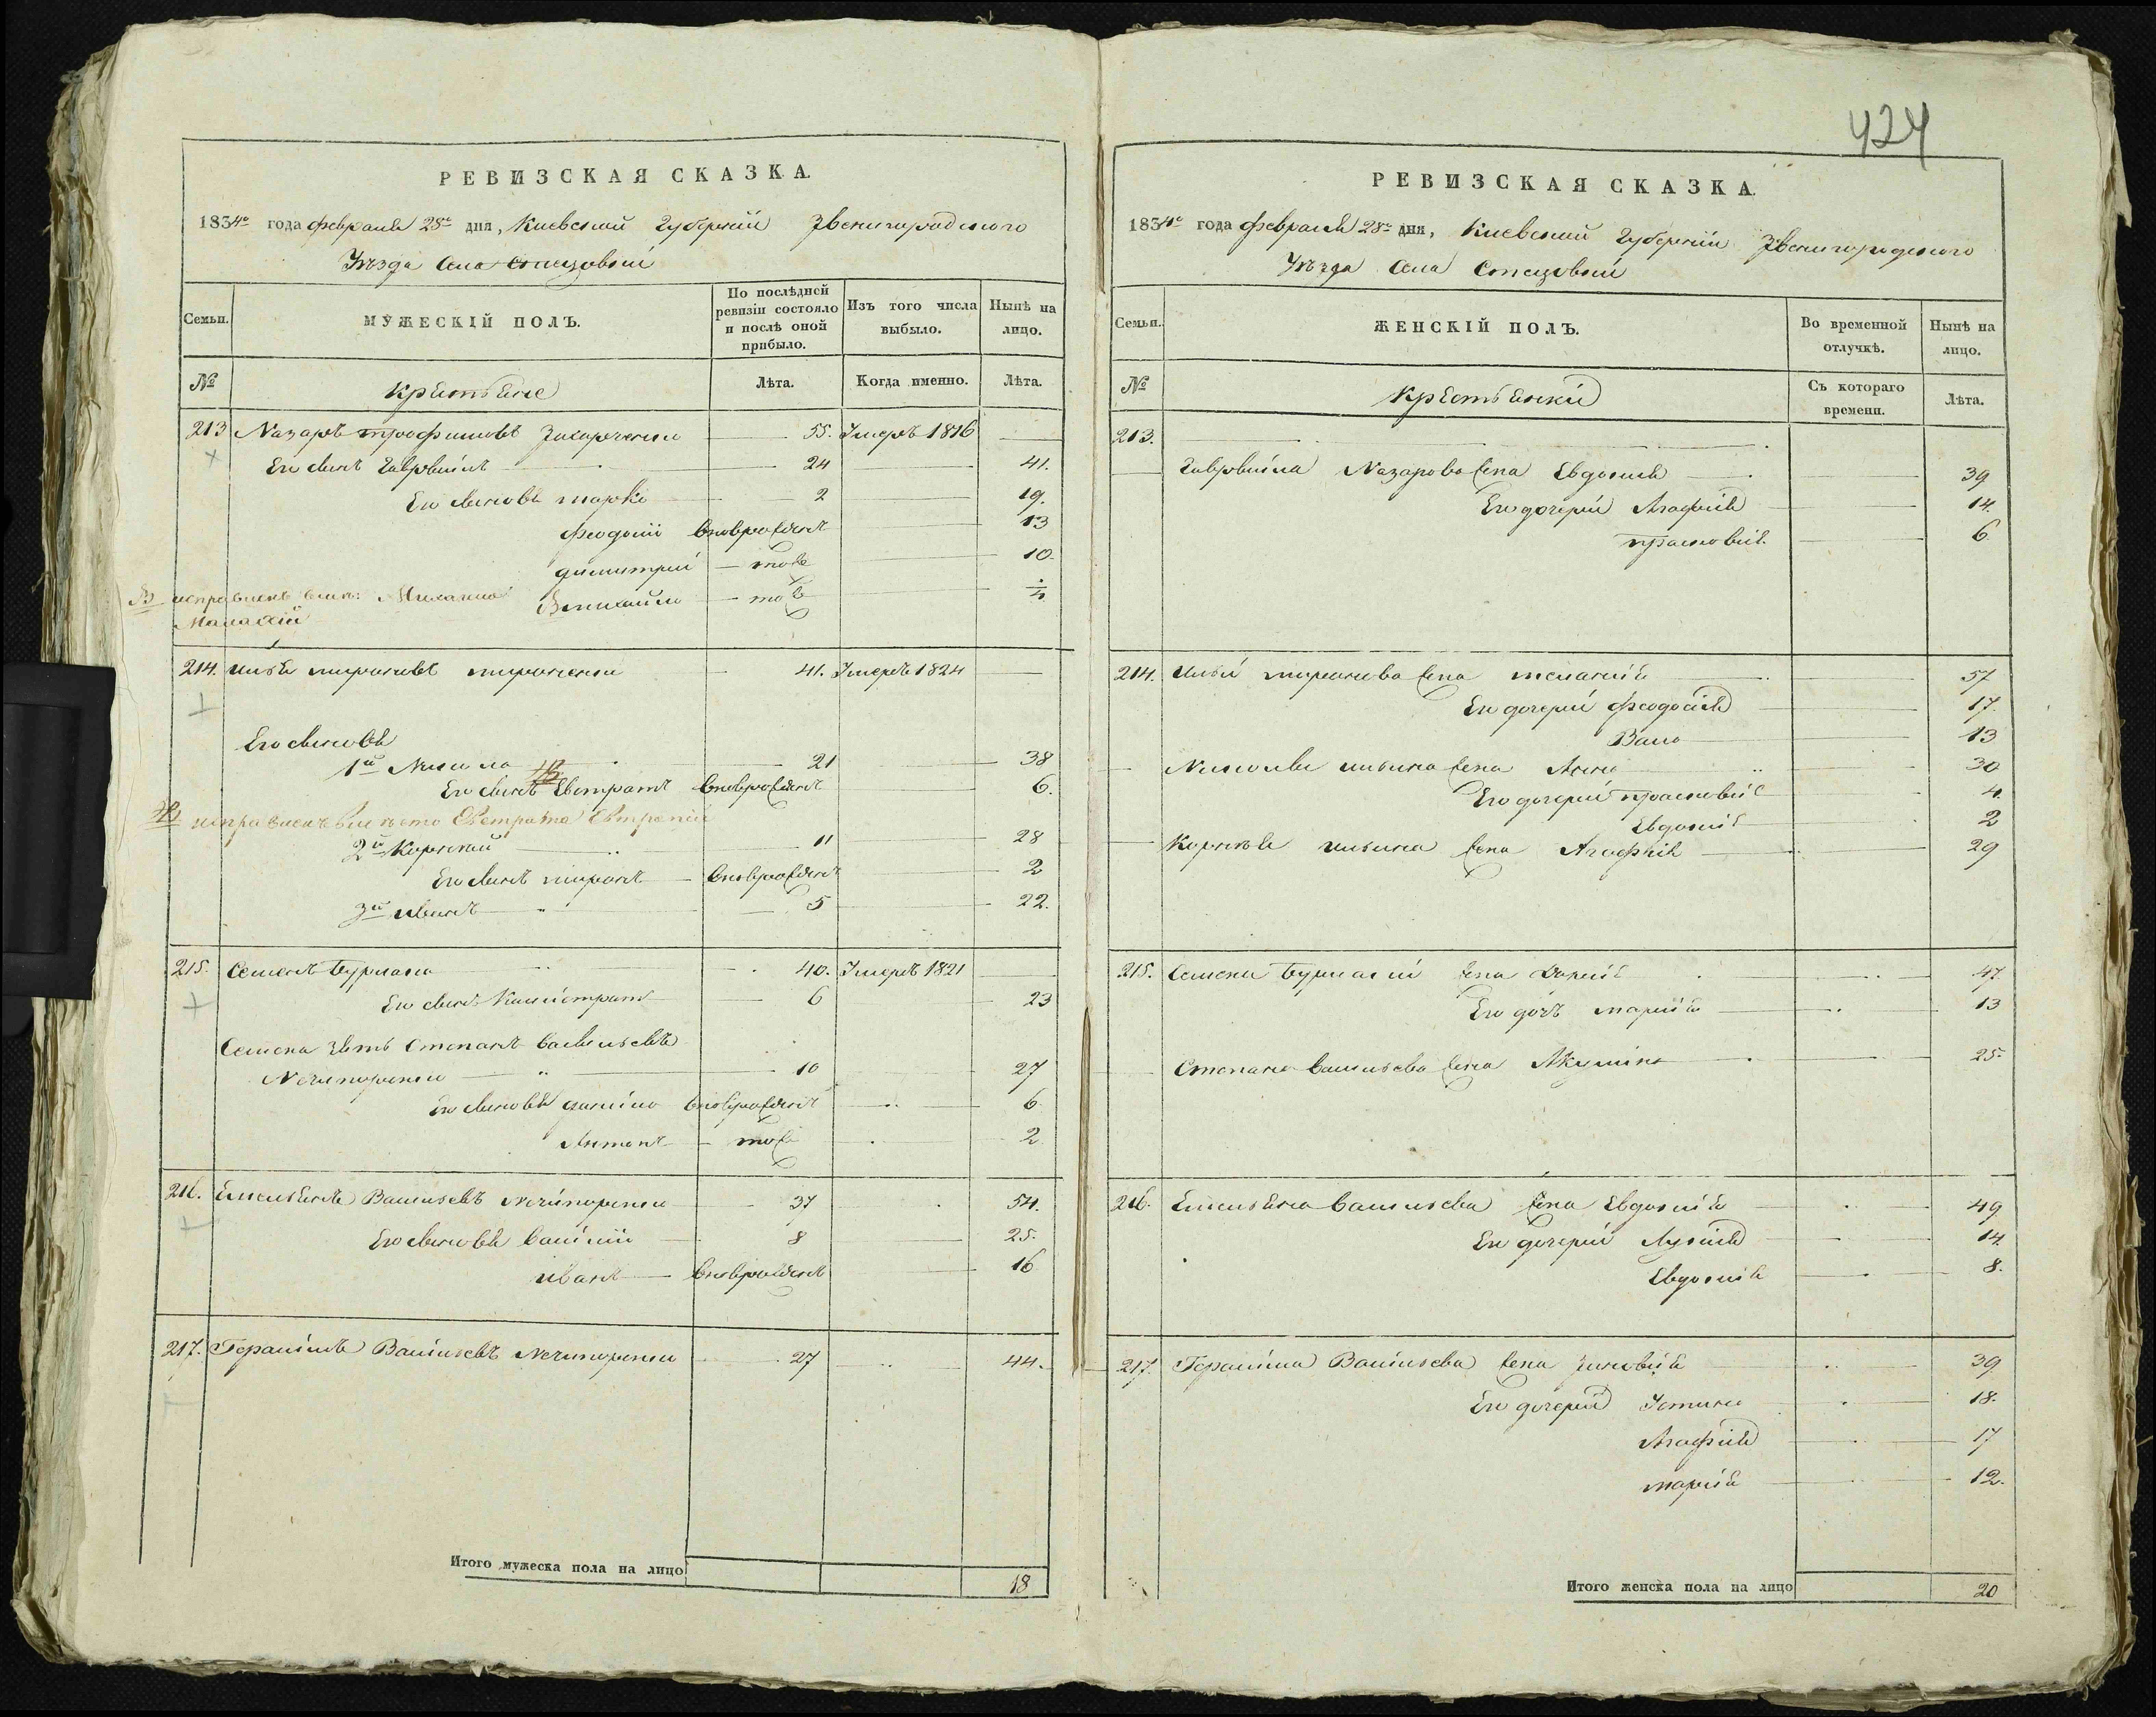 424
РЕВИЗСКАЯ СКАЗКА.
1834го года февраля 28го дня, Киевской Губернiи Звенигородского
Уѣзда Села Стецовки
Семьи.
МУЖЕСКІЙ ПОЛЪ.
По послѣдней ревизіи состояло и послѣ оной прибыло.
Изъ того числа выбыло.
Нынѣ на лицо.
№
крестьяне
Лѣта.
Когда именно.
Лѣта.
213 Назаръ трофимовъ Захарченко 55. Умеръ 1816
Его сынъ Гаврыилъ 24 41.
Его сыновья марко 2 19.
феодосiй вновьрожденъ 13
димитрiй тоже 10.
исправленъ вмѣс: Михаила михайло тоже
Малахiй
214. илья мироновъ мироненко 41. Умеръ 1824
Его сыновья
1й Никола 21 38
Его сынъ Евстратъ вновьрожденъ 6.
исправленъ вмѣсто Евстрата
2й Корнiй 11 28
Его сынъ миронъ вновьрожденъ 2
3й иванъ 5 22.
215. Семенъ 40. Умеръ 1821
Его сынъ Калистратъ 6 23
Семена зять Степанъ Васильевъ
Нечипоренко 10 27
Его сыновья данiло вновьрожденъ 6
Антонъ тоже 2
216. Емельянъ Васильевъ Нечипоренко 37 54.
Его сыновья Васiлiй 8 25.
иванъ вновьрожденъ 16
217. Герасiмъ Васiльевъ Нечипоренко 27 44.
Итого мужеска пола на лицо 18
РЕВИЗСКАЯ СКАЗКА.
1834го года февраля 28го дня, Киевской Губернiи Звенигородского
Уѣзда Села Стецовки
Семьи.
ЖЕНСКІЙ ПОЛЪ.
Во временной отлучкѣ.
Нынѣ на лицо.
№
крестьянки
Съ котораго времени.
Лѣта.
213.
Гаврыила Назарова жена Евдокия 39
Его дочери Агафiя 14.
прасковiя 6.
214. ильи миронова жена меланiя 57
Его дочери феодосiя 17.
13
Николы ильина жена Анна 30
Его дочери прасковiя 4.
Евдокiя 2
Корнѣя ильина жена Агафiя 29
215. Семена жена Дарiя 47.
Его дочь марiя 13
Степана Васильева жена Акулина 25.
216. Емельяна Васильева жена Евдокiя 49
Его дочери Лукiя 14.
Евдокiя 8.
217. Герасiма Васiльева жена Зиновiя 39
Его дочери Устина 18.
Агафiя 17
марiя 12.
Итого женска пола на лицо 20